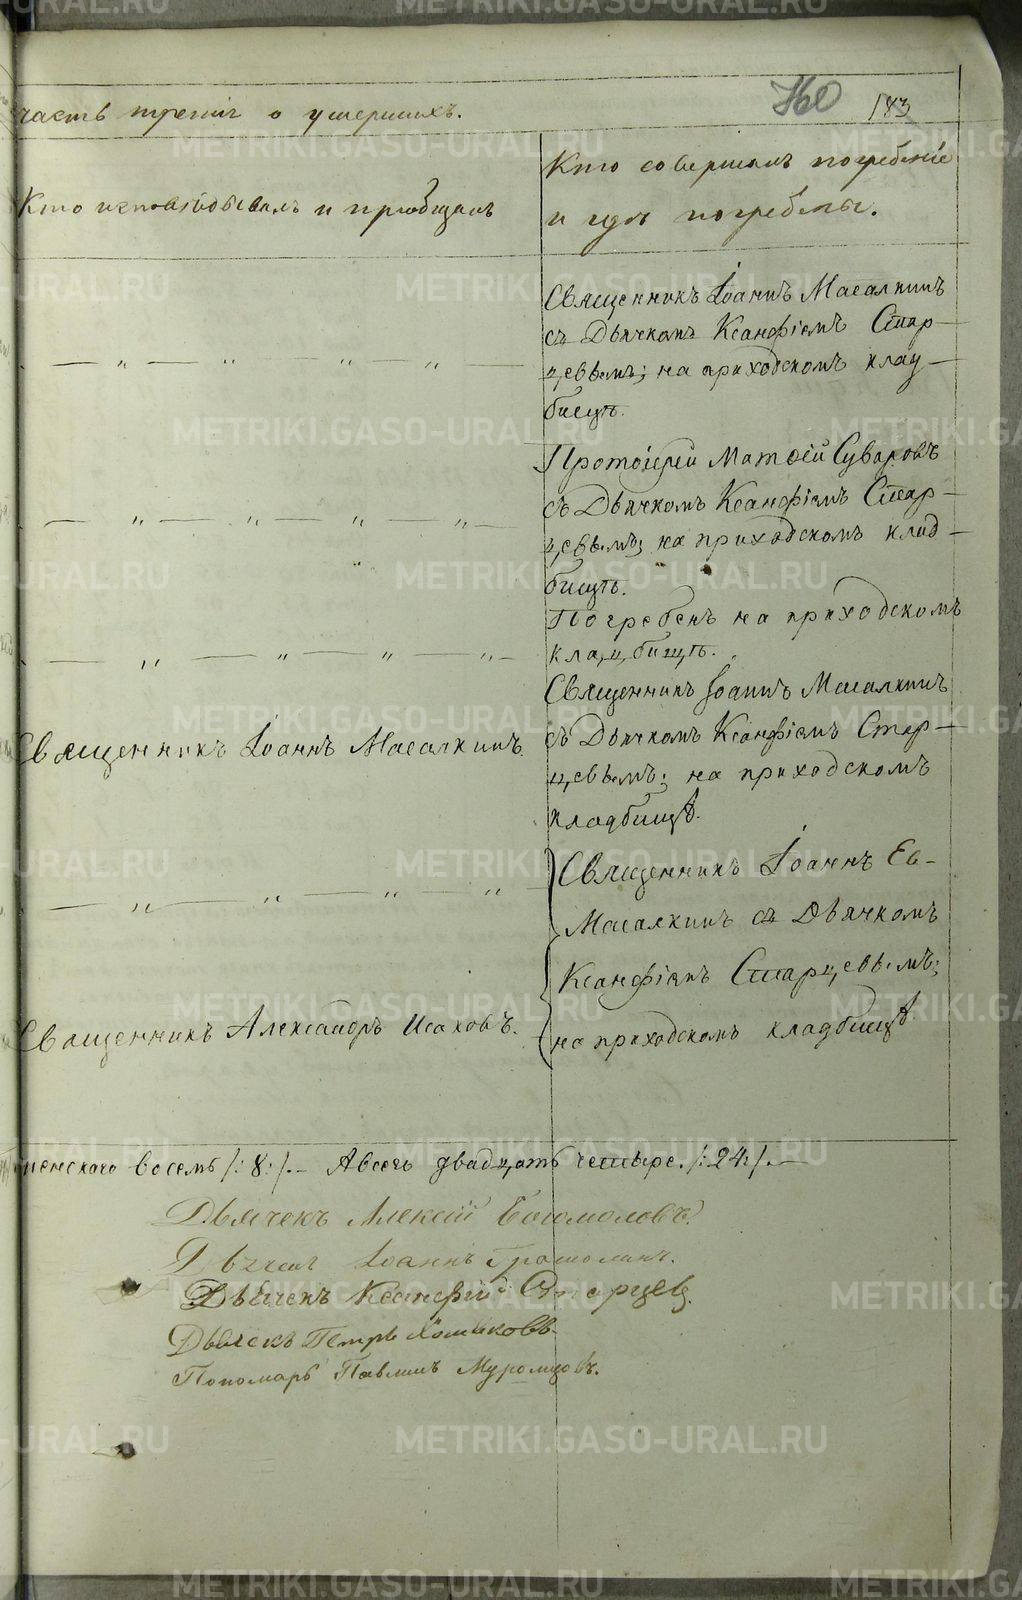 183
часть третія о умершихъ.
Кто исповѣдывалъ и приобщалъ
Кто совершалъ погребеніе
и гдѣ погребены.
Священникъ Іоаннъ Масалкинъ
съ Дьячкомъ Ксанфіемъ Стар-
цевымъ; на приходскомъ клад-
бищѣ.
Протоіерей Матѳей Суваровъ
съ Дьячкомъ Ксанфіемъ Стар-
цевымъ; на приходскомъ клад-
бищѣ.
Погребенъ на приходскомъ
кладбищѣ.
Священникъ Іоаннъ Масалкинъ.
Священникъ Іоаннъ Масалкинъ
съ Дьячкомъ Ксанфіемъ Стар-
цевымъ; на приходскомъ
кладбищѣ.
Священникъ Іоаннъ Ев-
Масалкинъ съ Дьячкомъ
Ксанфіемъ Старцевымъ;
на приходскомъ кладбищѣ.
Священникъ Александръ Исаковъ.
женскаго восемь /:8:/.- Всего двадцать четыре. /:24:/.-
Дьячекъ Алексій Богомоловъ.
Іоаннъ
Дьячекъ Ксанфій Старцев.
Дьячекъ Петръ Хомяковъ.
Пономарь Павлинъ Муромцовъ.
METRIKI.GASO-URAL.RU